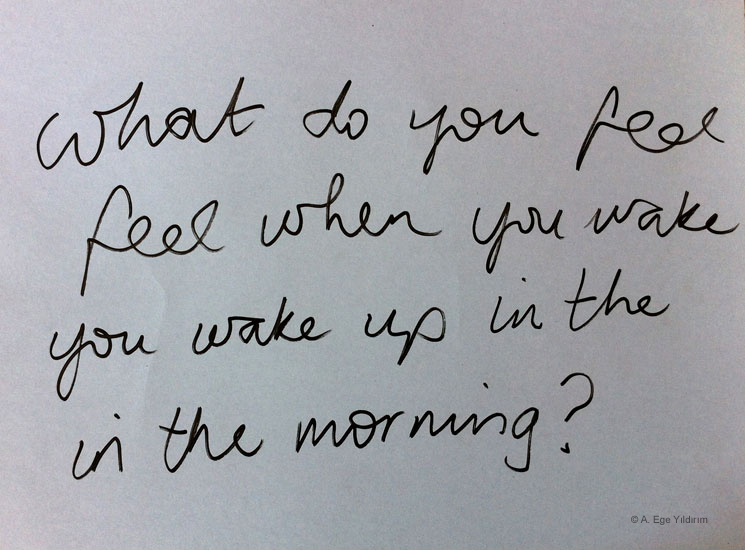 What do you feel
feel when you wake
you wake up in the
in the morning?
© A. Ege Yıldırım